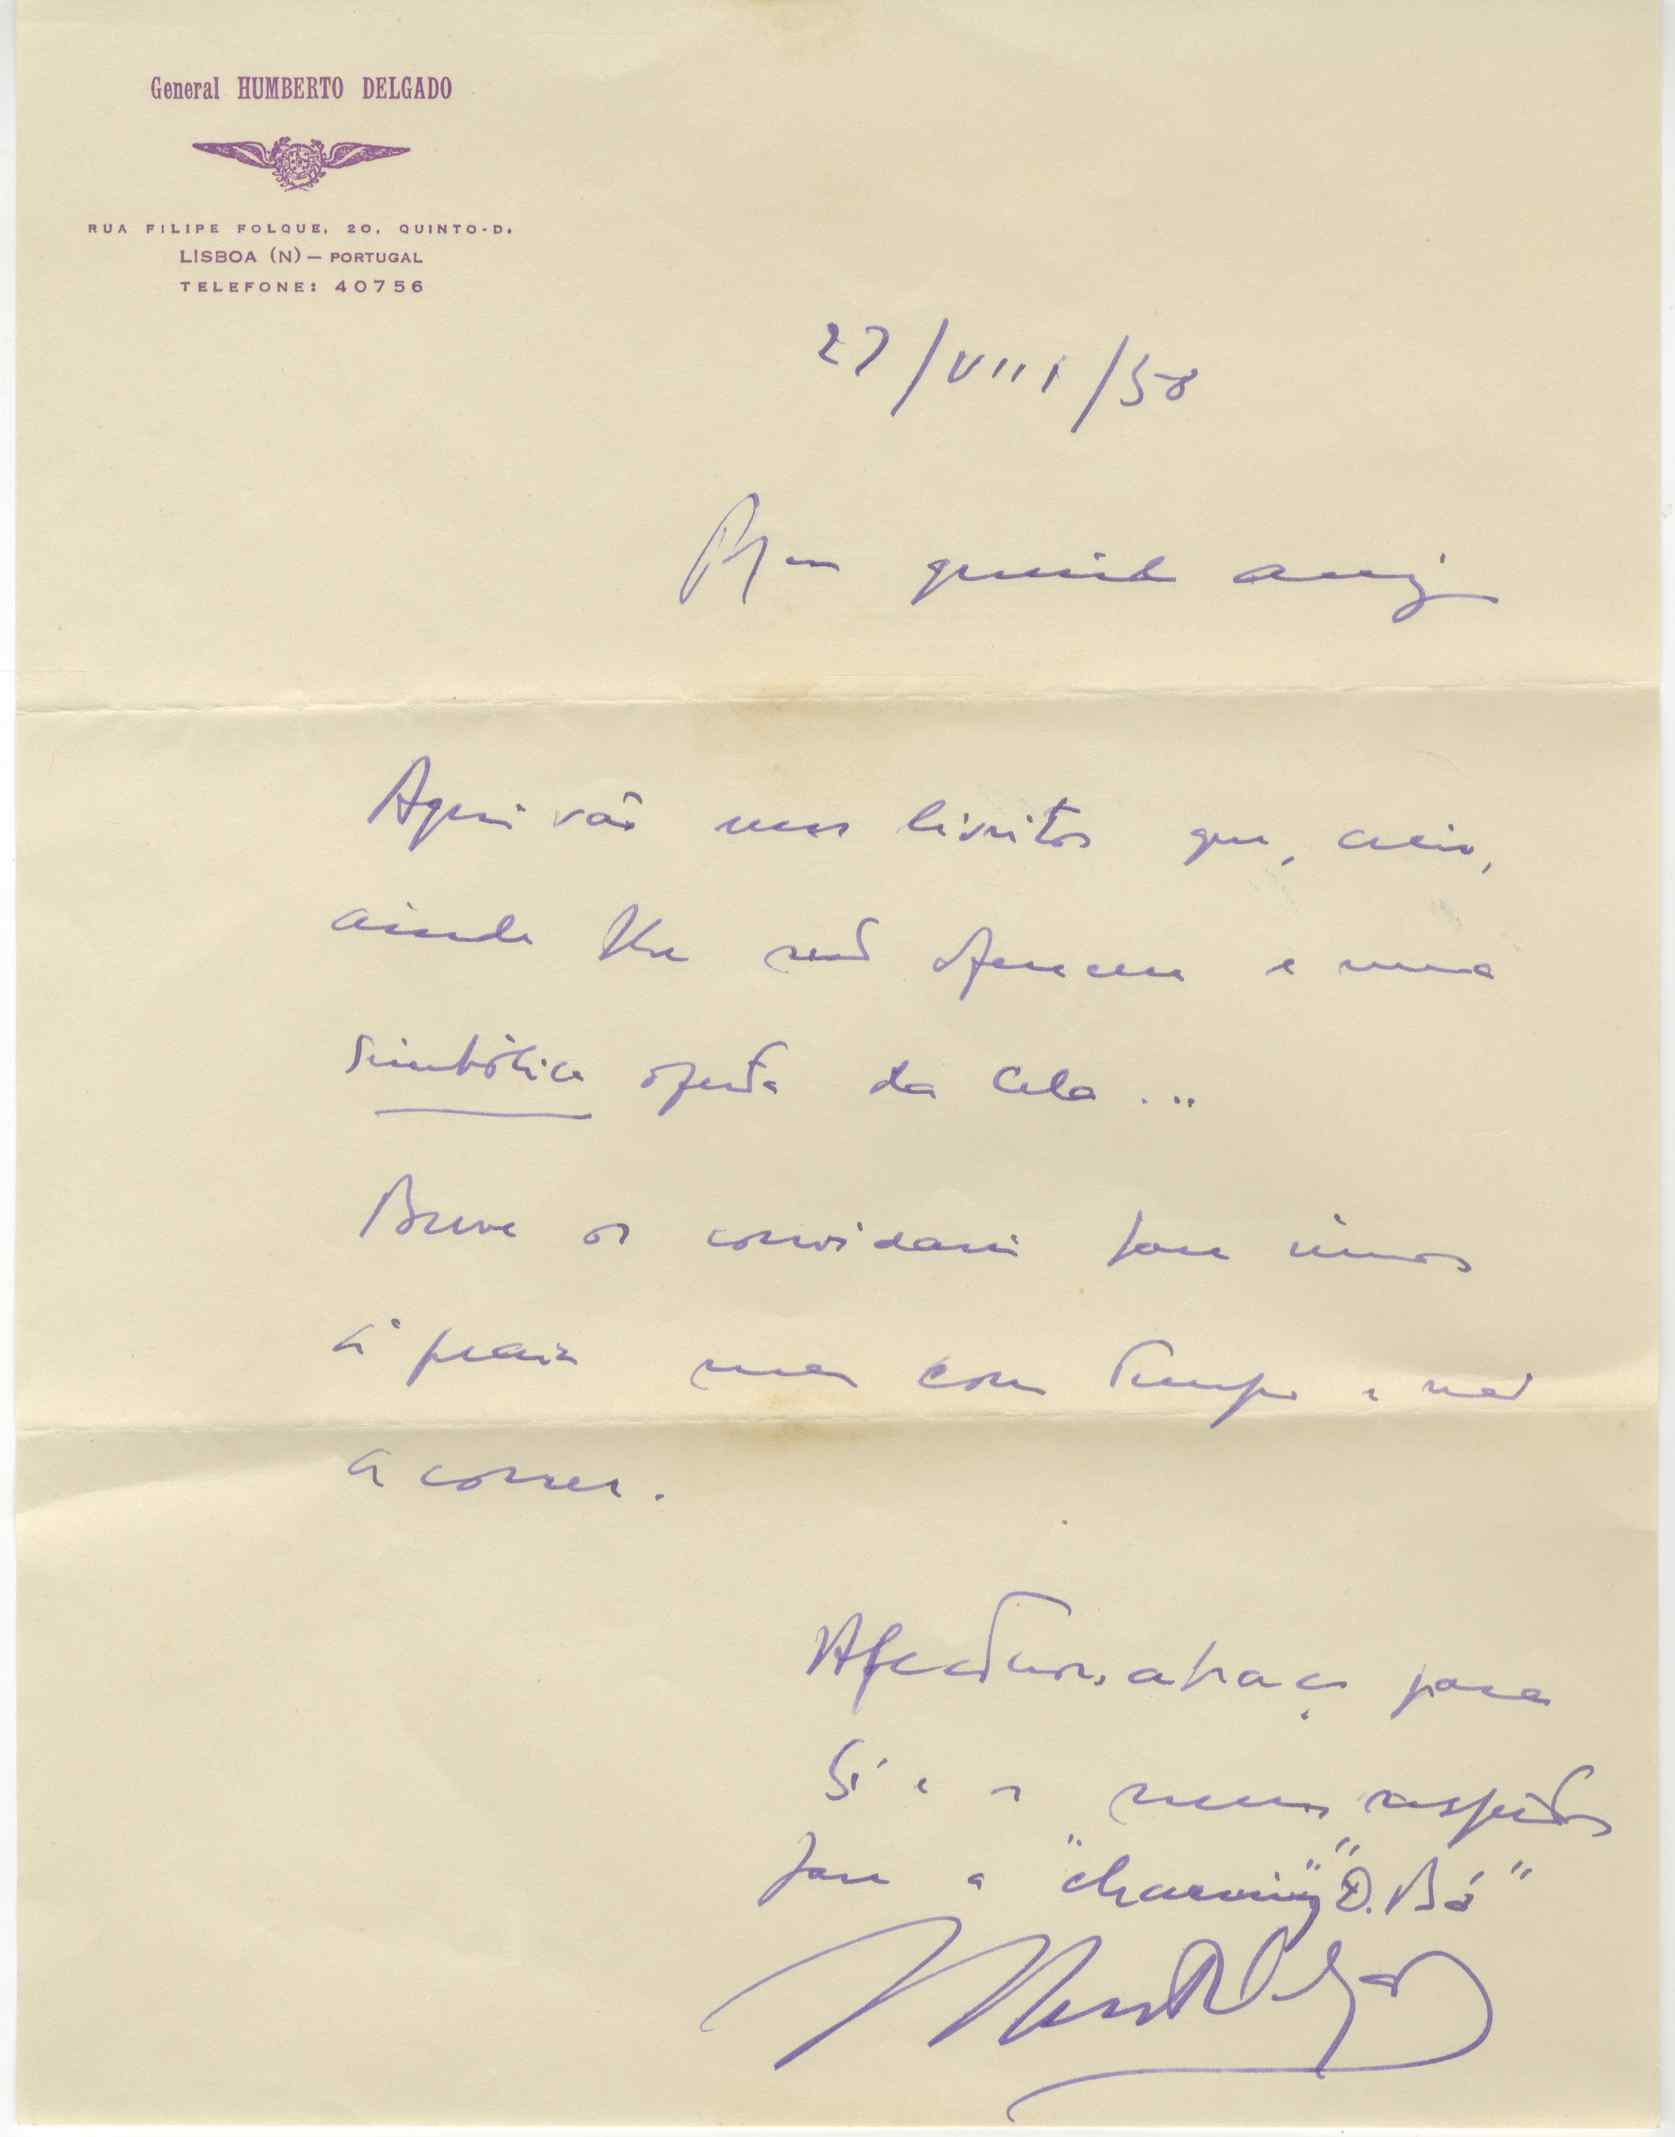 General HUMBERTO DELGADO
RUA FILIPE FOLQUE, 20, QUINTO-D.
LISBOA (N) — PORTUGAL
TELEFONE: 40756
27/VIII/58
Meu querido amigo
Aqui vão uns livritos que, creio,
ainda lhe não ofereceram e uma
simbólica oferta da Cela...
Breve os convidarei para irmos
à praia mas com tempo e não
a correr.
Afectuoso abraço para
Si e os meus respeitos
para a "charming" "D. Bá"
Humberto Delgado